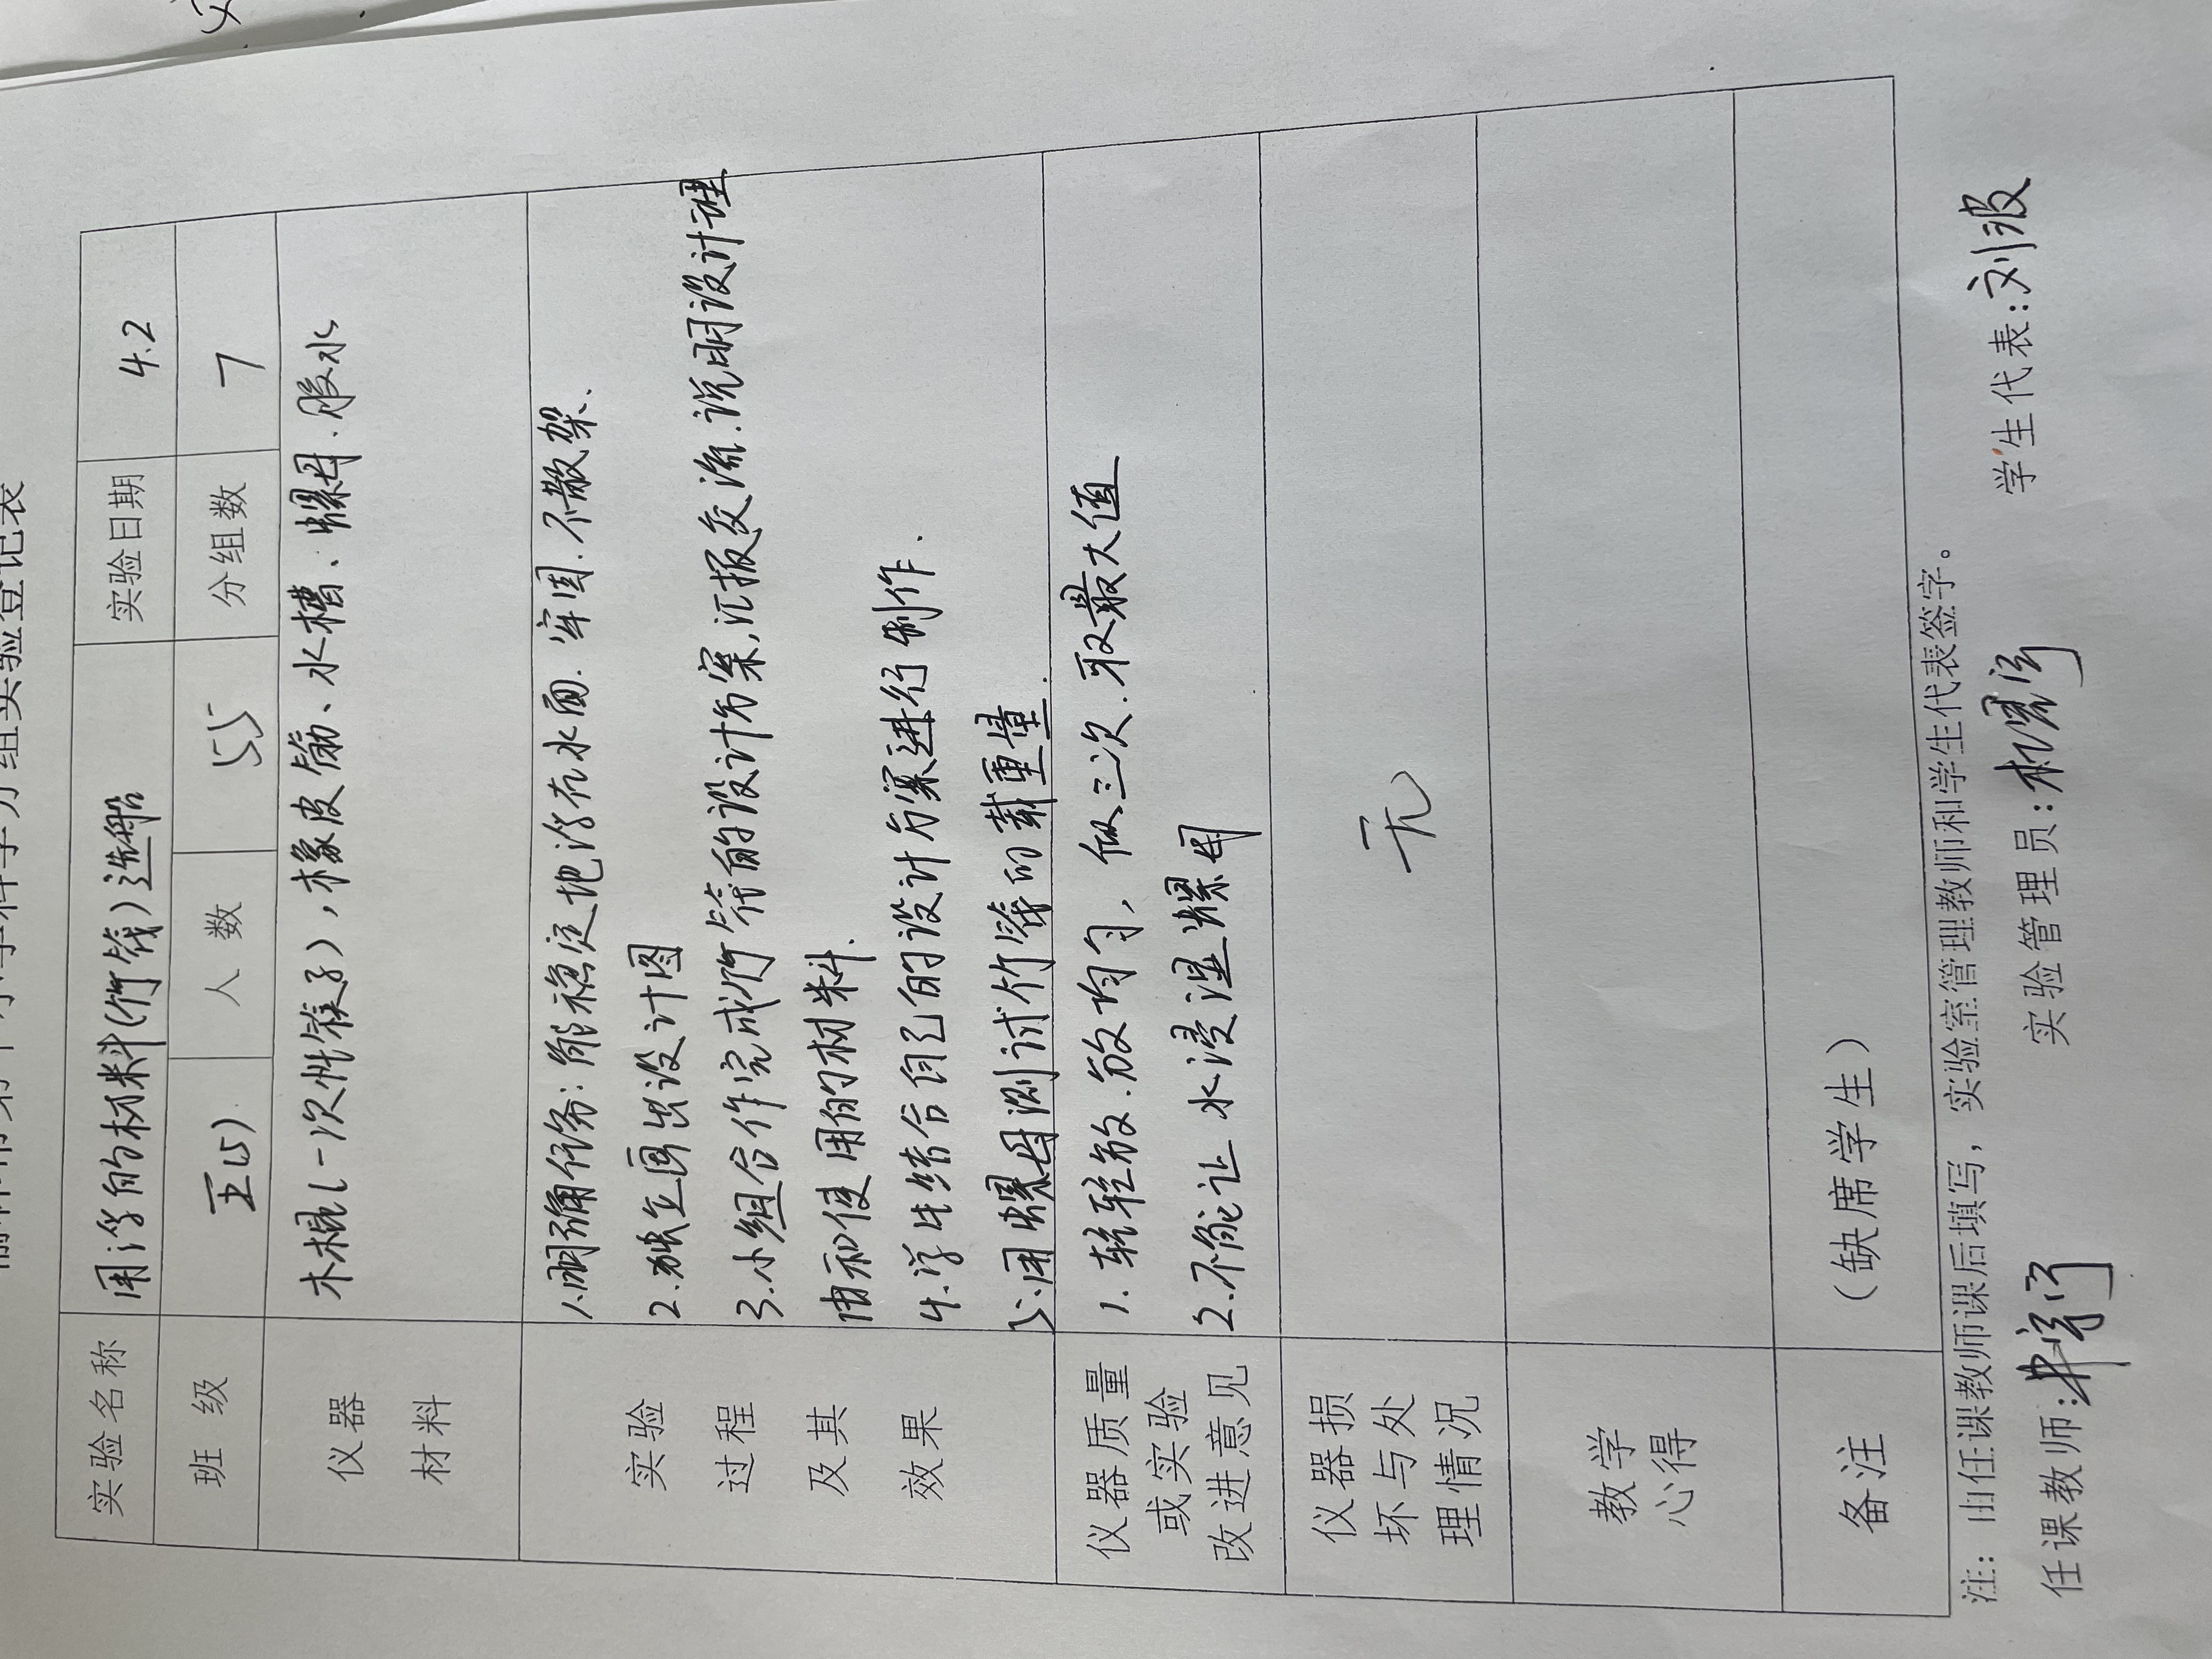 小学科学分组实验登记表
实验名称 用浮的材料(竹筏)造船 实验日期 4.2
班级 五(5) 人数 55 分组数 7
仪器
材料
木棍(一次性筷子),橡皮筋、水槽、螺母、胶水
实验
过程
及其
效果
1.明确任务:能稳定地浮在水面.牢固.不散架.
2.独立画出设计图
3.小组合作完成竹筏的设计方案,汇报交流.说明设计理
由和使用的材料.
4.学生结合自己的设计方案进行制作.
5.用螺母测试竹筏的载重量.
仪器质量
或实验
改进意见
1.轻轻放.放均匀,做三次.取最大值
2.不能让水浸湿螺母
仪器损
坏与处
理情况
无
教学
心得
备注 (缺席学生)
注:由任课教师课后填写,实验室管理教师和学生代表签字。
任课教师: 实验管理员: 学生代表:刘波